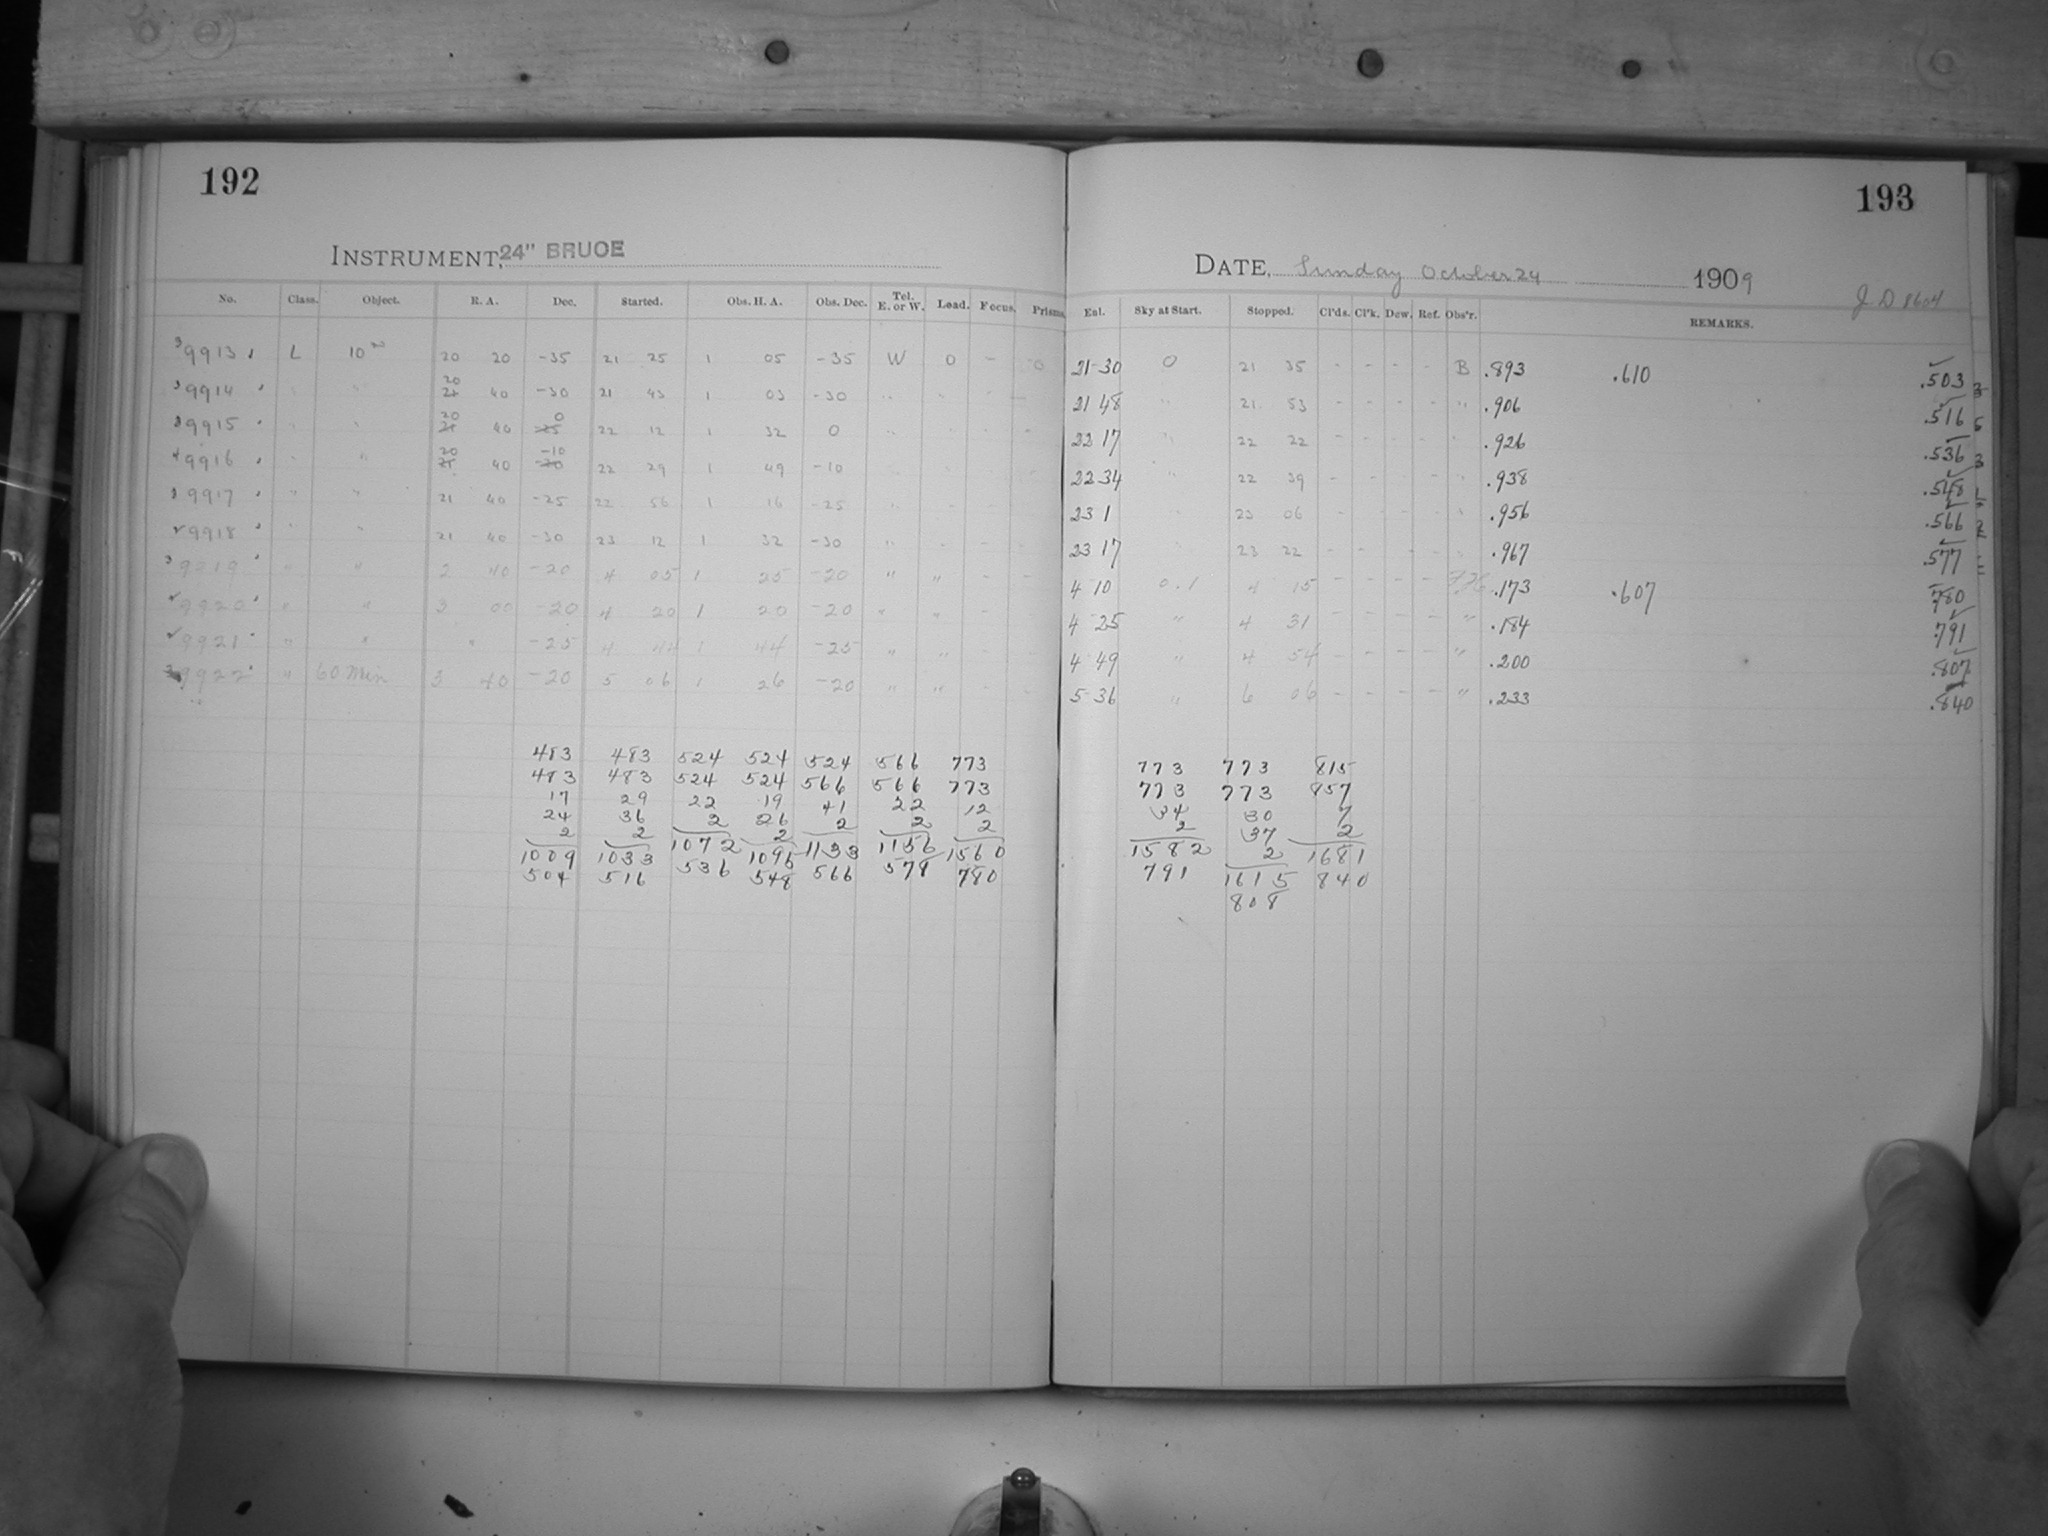 192
INSTRUMENT, 24" BRUCE
No. Class. Object. R. A. Dec. Started. Obs. H. A. Obs. Dec. Tel. E. or W. Lead. Focus. Prisms.
9913 L 10m 20 20 -35 21 25 1 05 -35 W 0 - 0
9914 " " 20 21 40 -30 21 43 1 03 -30 " "
9915 " " 20 21 40 0 -25 22 12 1 32 0 " "
9916 " " 20 21 40 -10 -20 22 29 1 49 -10
9917 " " 21 40 -25 22 56 1 16 -25 "
9918 " " 21 40 -30 23 12 1 32 -30 " "
9919 " " 2 40 -20 4 05 1 25 -20 " " - -
9920 " " 3 00 -20 4 20 1 20 -20 " " - -
9921 " " " -25 4 44 1 44 -25 " " - -
9922 " 60 Min 3 40 -20 5 06 1 26 -20 " " - -
483 483 524 524 524 566 773
483 483 524 524 566 566 773
17 29 22 19 41 22 12
24 36 2 26 2 2 2
2 2 1072 2 1133 1156 1560
1009 1033 536 1095 566 578 780
504 516 548
193
DATE, Sunday October 24 1909
J. D 8604
Ent. Sky at Start. Stopped. Cl'ds. Cl'k. Dew. Ref. Obs'r. REMARKS.
21-30 0 21 35 - - - - B .893 .610 .503
21 48 " 21 53 - - - - " .906 .516
22 17 " 22 22 - - - - " .926 .536
22 34 " 22 39 - - - - " .938 .548
23 1 " 23 06 - - - - " .956 .566
23 17 " 23 22 - - - - " .967 .577
4 10 0.1 4 15 - - - - .173 .607 780
4 25 " 4 31 - - - - " .184 .791
4 49 " 4 54 - - - - " .200 .807
5-36 " 6 06 - - - - " .233 .840
773 773 815
773 773 857
34 30 7
2 37 2
1582 2 1681
791 1615 840
808